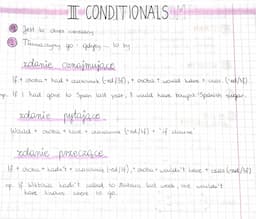 III CONDITIONALS
Jest to okres
Tłumaczymy go: gdyby... to by
zdanie oznajmujące
If + osoba + had + czasownik (-ed/3f), + osoba + would have + czas. (-ed/3f)
np. If I had gone to Spain last year, I would have bought Spanish
zdanie pytające
Would + osoba + have + czasownik (-ed/3f) + if clause
zdanie przeczące
If + osoba + hadn't + czasownik (-ed/3f), + osoba + wouldn't have + czas (-ed/3f)
np. If Wiktoria hadn't called to last week, she wouldn't
have known where to go.